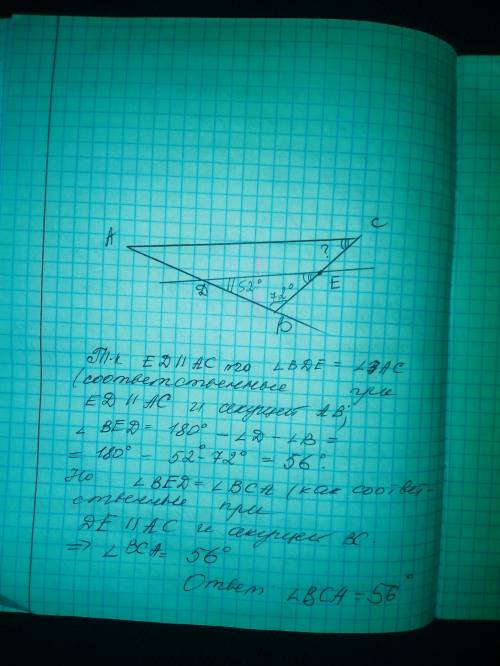 C
A
?
D 52° 72° E
B
Т.к ED || AC то ∠BDE = ∠BAC
(соответственные при
ED || AC и секущей AB;
∠ BED = 180° - ∠D - ∠B =
= 180° - 52° - 72° = 56°.
Но ∠BED = ∠BCA (как соответ-
ственные при
DE || AC и секущей BC.
=> ∠BCA = 56°
Ответ ∠BCA = 56°